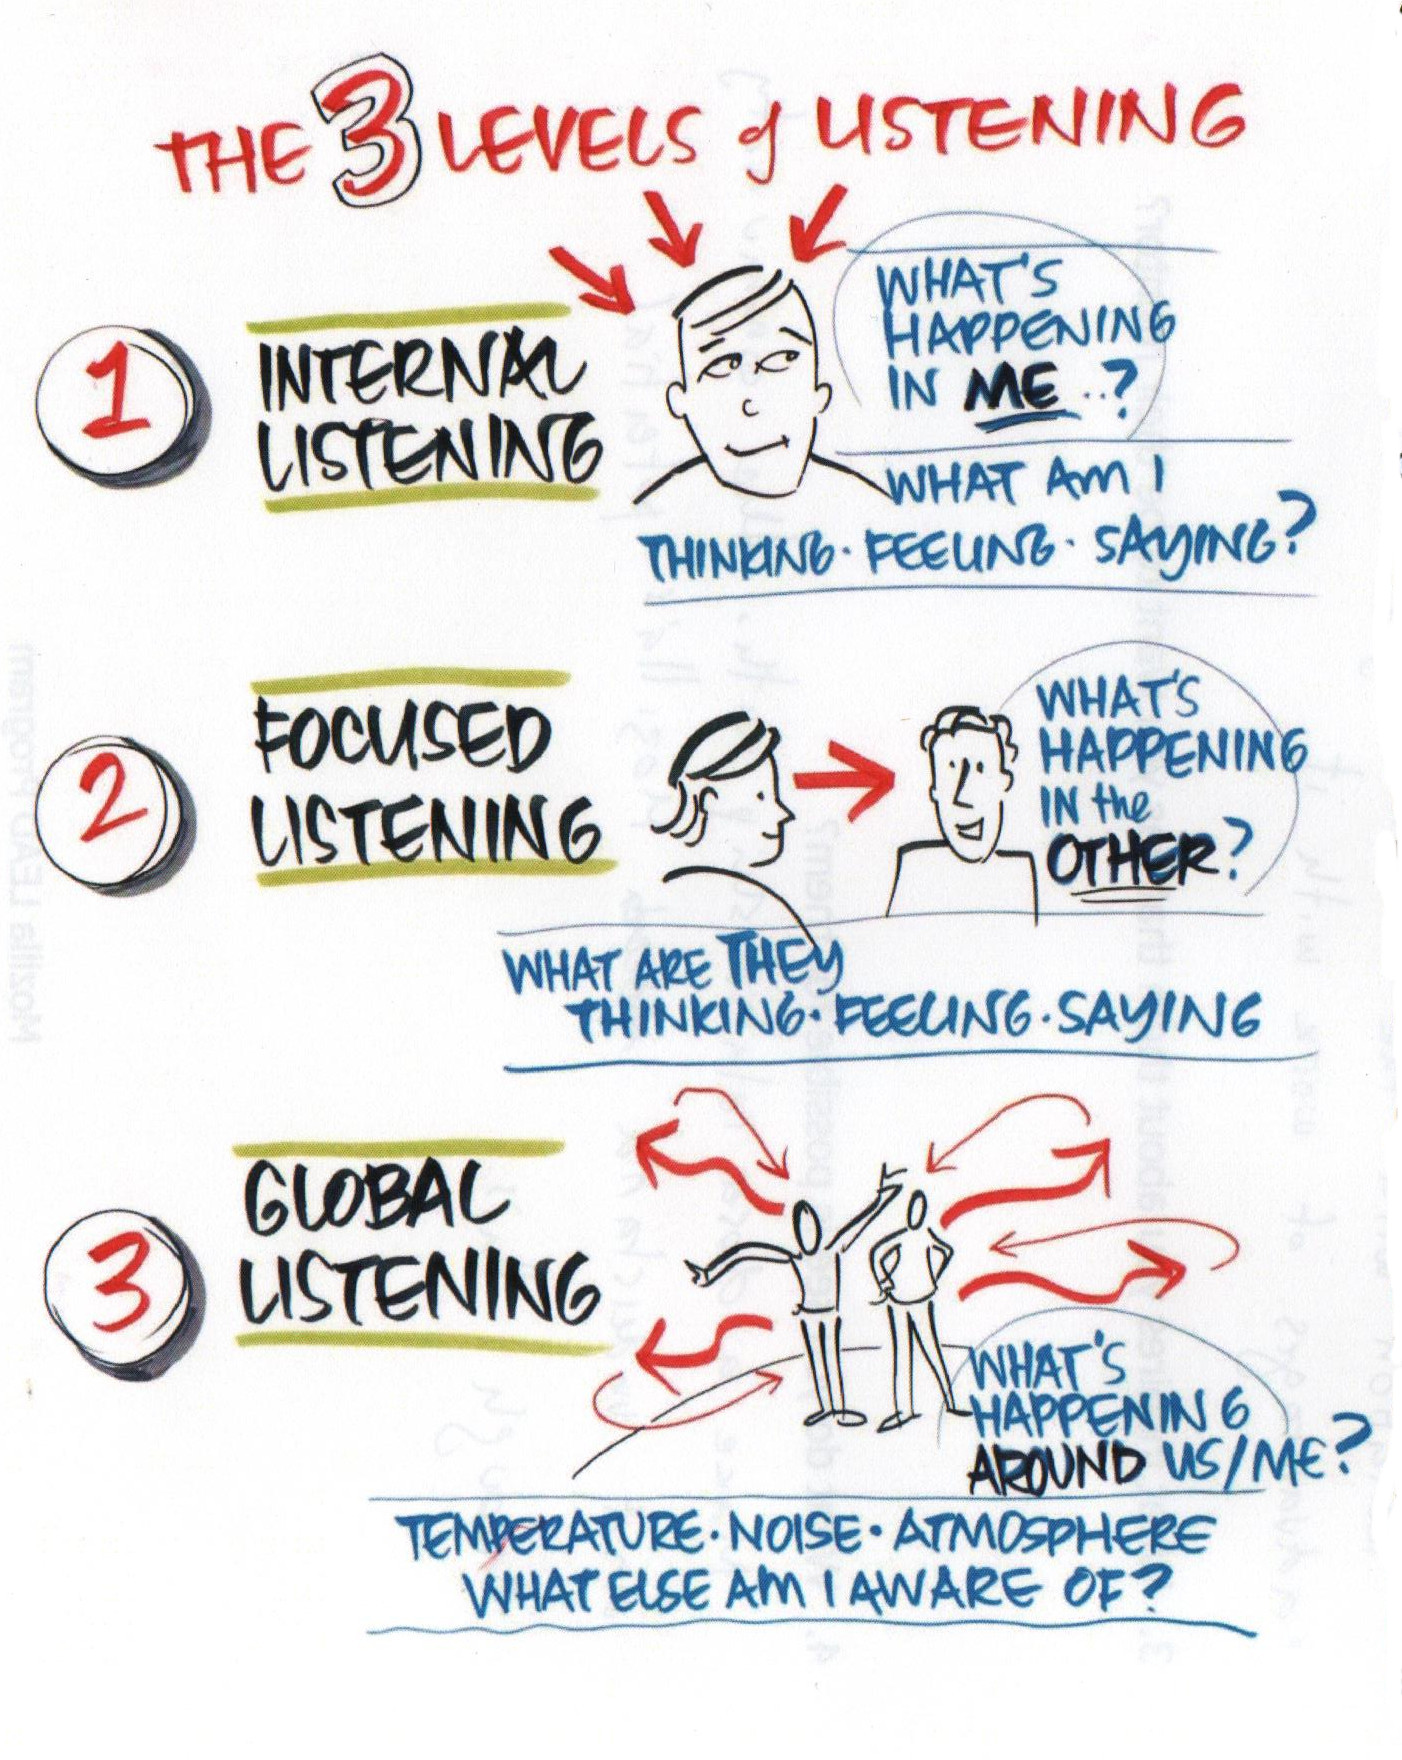 THE 3 LEVELS of LISTENING
1
INTERNAL
LISTENING
WHAT'S
HAPPENING
IN ME..?
WHAT AM I
THINKING · FEELING · SAYING?
2
FOCUSED
LISTENING
WHAT'S
HAPPENING
IN the
OTHER?
WHAT ARE THEY
THINKING · FEELING · SAYING
3
GLOBAL
LISTENING
WHAT'S
HAPPENING
AROUND US/ME?
TEMPERATURE · NOISE · ATMOSPHERE
WHAT ELSE AM I AWARE OF?
Mozilla LEAD Program